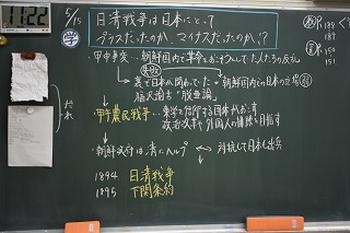 11:22
5/15
学
日清戦争は日本にとって
プラスだったのか、マイナスだったのか!?
甲申事変…朝鮮国内で革命をおこそうとした人たちの反乱
失敗
裏で日本が関わっていた
朝鮮国内での日本の立場
福沢諭吉「脱亜論」
甲午農民戦争…東学を信仰する団体がおこす
政治改革や外国人の排除を目指す
朝鮮政府は清にヘルプ
対抗して日本も出兵
1894 日清戦争
1895 下関条約
P.188
189
P.150
151